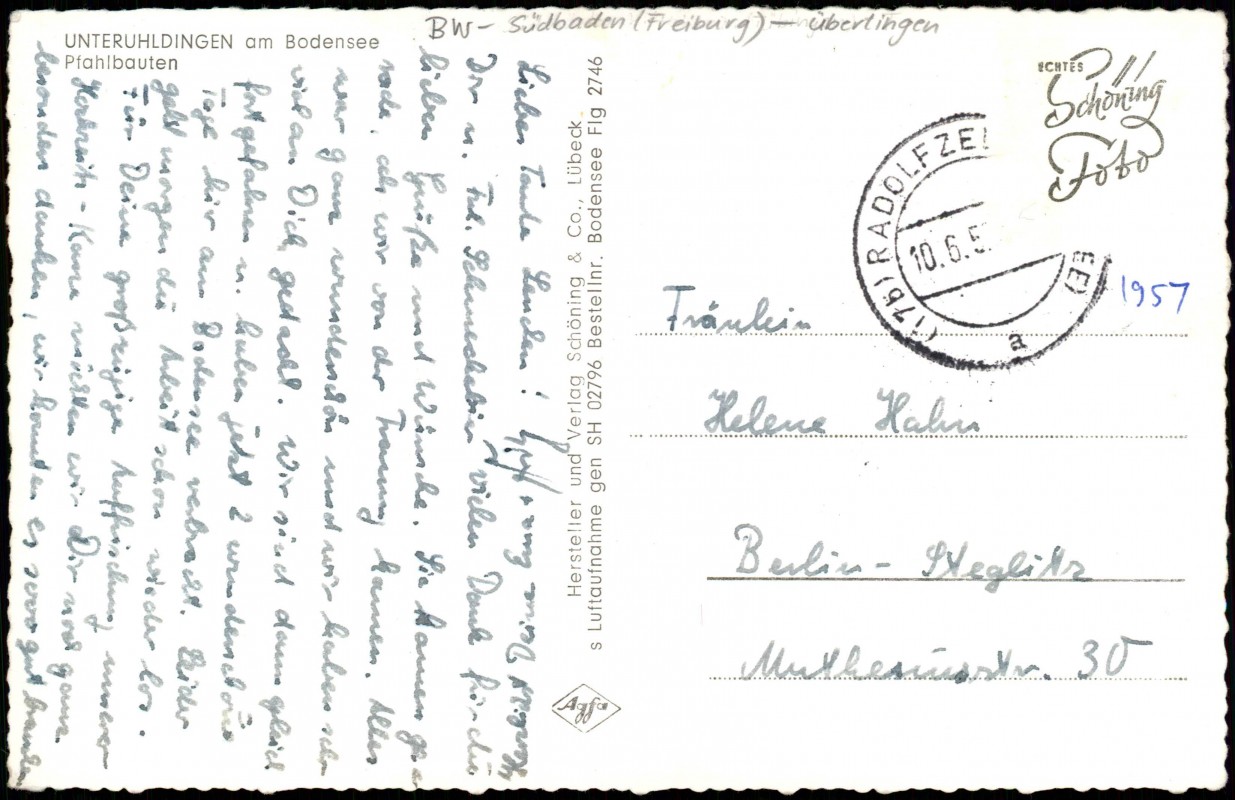 BW - Südbaden (Freiburg) - Überlingen
UNTERUHLDINGEN am Bodensee
Pfahlbauten
ECHTES
Schöning
Foto
(17b) RADOLFZE
EE)
10.6.5
a
1957
Fräulein
Helene Hahn
Berlin - Steglitz
Muthesiusstr. 30
Hersteller und Verlag Schöning & Co., Lübeck
s Luftaufnahme gen SH 02796 Bestellnr. Bodensee Flg 2746
Agfa
Liebe Tante Lenchen!
Dir u. Frl. vielen Dank für die
lieben Grüße und Wünsche. Sie kamen ge-
rade, als wir von der Trauung kamen. Alles
war ganz wunderschön und wir haben sehr
viel an Dich gedacht. Wir sind dann gleich
fortgefahren u. haben jetzt 2 wunderschöne
Tage hier am Bodensee verbracht. Leider
geht morgen die Arbeit schon wieder los.
Für Deine großzügige Auffrischung unserer
Hochzeits-Kasse möchten wir Dir noch ganz
besonders danken, wir konnten es so gut brauchen